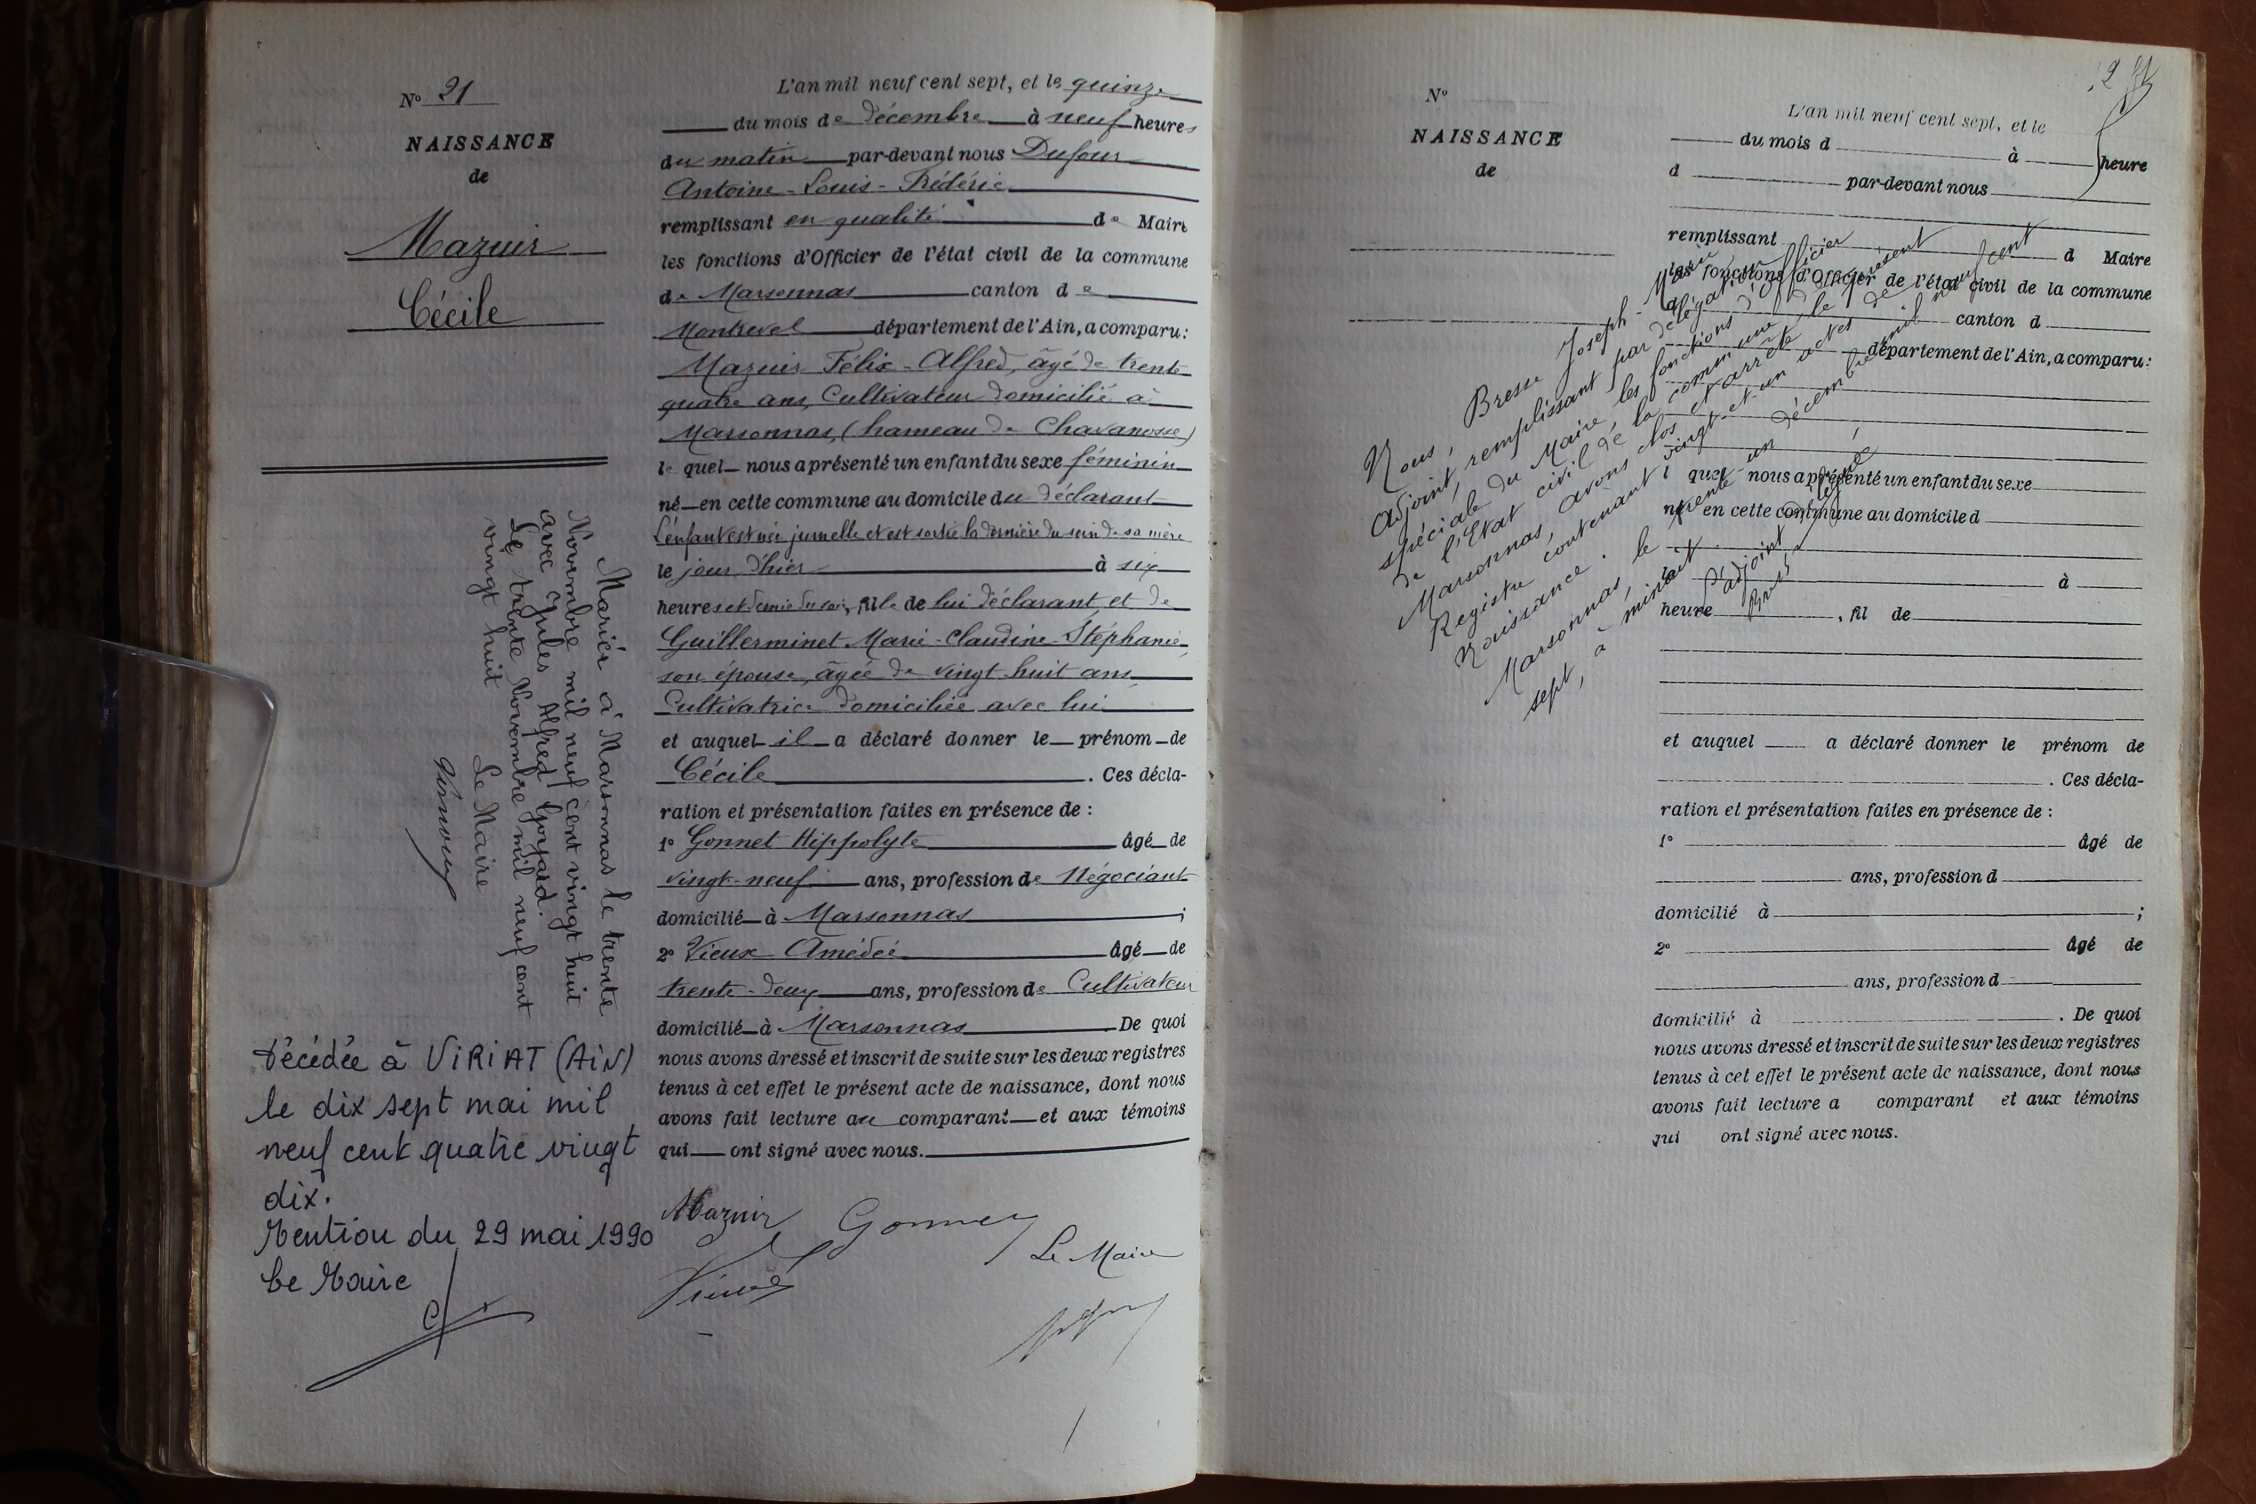 N° 21
NAISSANCE
de
Mazuir
Cécile
Mariée à Marsonnas le trente
Novembre mil neuf cent vingt huit
avec Jules Alfred Goyard.
Le trente Novembre mil neuf cent
vingt huit
Le Maire
Décédée à VIRIAT (AIN)
le dix sept mai mil
neuf cent quatre vingt
dix.
Mention du 29 mai 1990
Le Maire
L'an mil neuf cent sept, et le quinze
du mois de décembre à neuf heures
du matin par-devant nous Dufour
Antoine-Louis-Frédéric
remplissant en qualité de Maire
les fonctions d'Officier de l'état civil de la commune
de Marsonnas canton de
Montrevel département de l'Ain, a comparu:
Mazuir Félix-Alfred, âgé de trente-
quatre ans, Cultivateur domicilié à
Marsonnas, (hameau de Chavanosse)
lequel nous a présenté un enfant du sexe féminin
né en cette commune au domicile du déclarant
L'enfant est née jumelle et est sortie la dernière du sein de sa mère
le jour d'hier à six
heures et demie du soir, fille de lui déclarant, et de
Guillerminet Marie-Claudine-Stéphanie,
son épouse, âgée de vingt-huit ans,
Cultivatrice domiciliée avec lui
et auquel il a déclaré donner le prénom de
Cécile. Ces décla-
ration et présentation faites en présence de :
1° Gonnet Hippolyte âgé de
vingt-neuf ans, profession de Négociant
domicilié à Marsonnas ;
2° Vieux Amédée âgé de
trente-deux ans, profession de Cultivateur
domicilié à Marsonnas. De quoi
nous avons dressé et inscrit de suite sur les deux registres
tenus à cet effet le présent acte de naissance, dont nous
avons fait lecture au comparant et aux témoins
qui ont signé avec nous.
Mazuir Gonnet
Vieux
Le Maire
N°
NAISSANCE
de
L'an mil neuf cent sept, et le
du mois d à heure
d par-devant nous
remplissant d Maire
les fonctions d'Officier de l'état civil de la commune
d canton d
département de l'Ain, a comparu:
l quel nous a présenté un enfant du sexe
né en cette commune au domicile d
le à
heure , fil de
et auquel a déclaré donner le prénom de
. Ces décla-
ration et présentation faites en présence de :
1° âgé de
ans, profession d
domicilié à ;
2° âgé de
ans, profession d
domicilié à . De quoi
nous avons dressé et inscrit de suite sur les deux registres
tenus à cet effet le présent acte de naissance, dont nous
avons fait lecture a comparant et aux témoins
qui ont signé avec nous.
Nous, Bresse Joseph-Marie
Adjoint, remplissant par délégation
spéciale du Maire, les fonctions d'officier
de l'Etat civil de la commune de
Marsonnas, avons clos et arrêté le présent
Registre contenant vingt-et-un actes de
Naissance.
Marsonnas, le trente-un décembre mil neuf cent
sept, à minuit.
L'adjoint